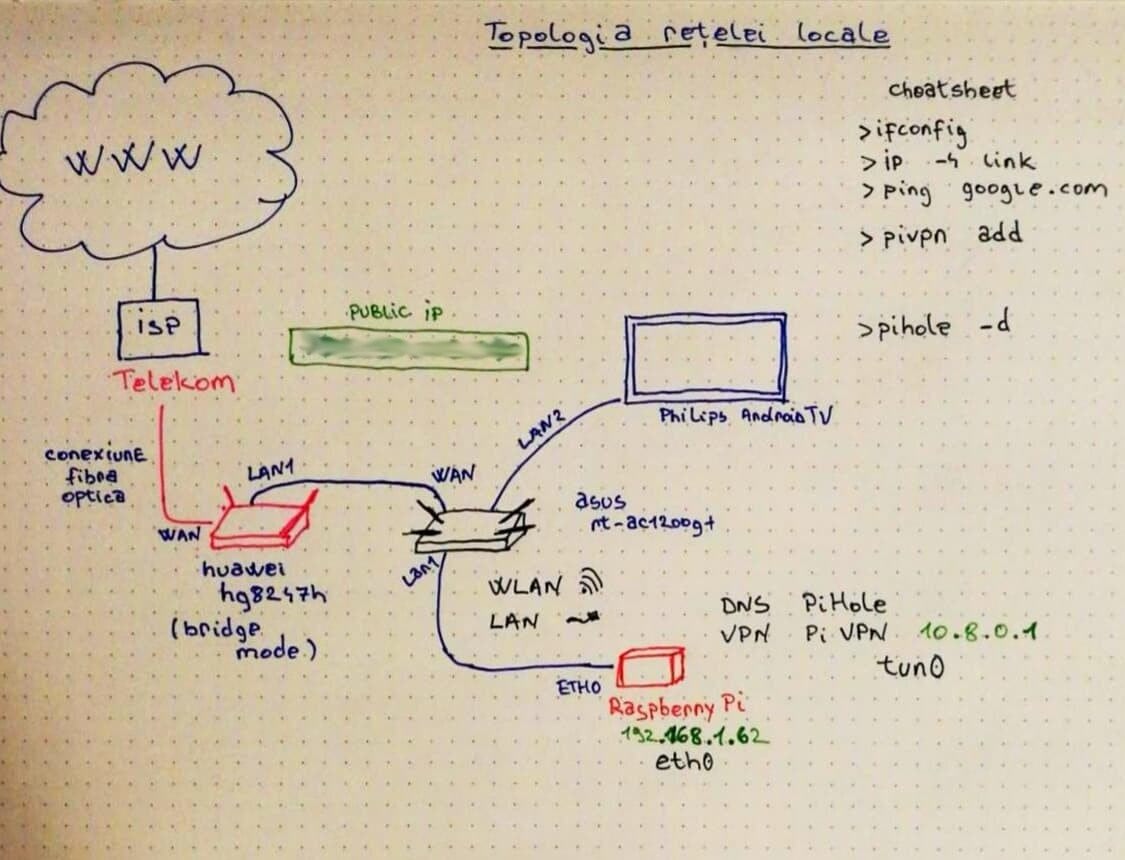 Topologia rețelei locale
cheatsheet
>ifconfig
>ip -4 link
>ping google.com
>pivpn add
>pihole -d
WWW
isp
Telekom
PUBLIC iP
Philips AndroidTV
LAN2
conexiune
fibra
optica
WAN
LAN1
WAN
huawei
hg8247h
(bridge
mode)
asus
rt-ac1200g+
Lan1
WLAN
LAN
ETH0
Raspberry Pi
192.168.1.62
eth0
DNS PiHole
VPN Pi VPN 10.8.0.1
tun0